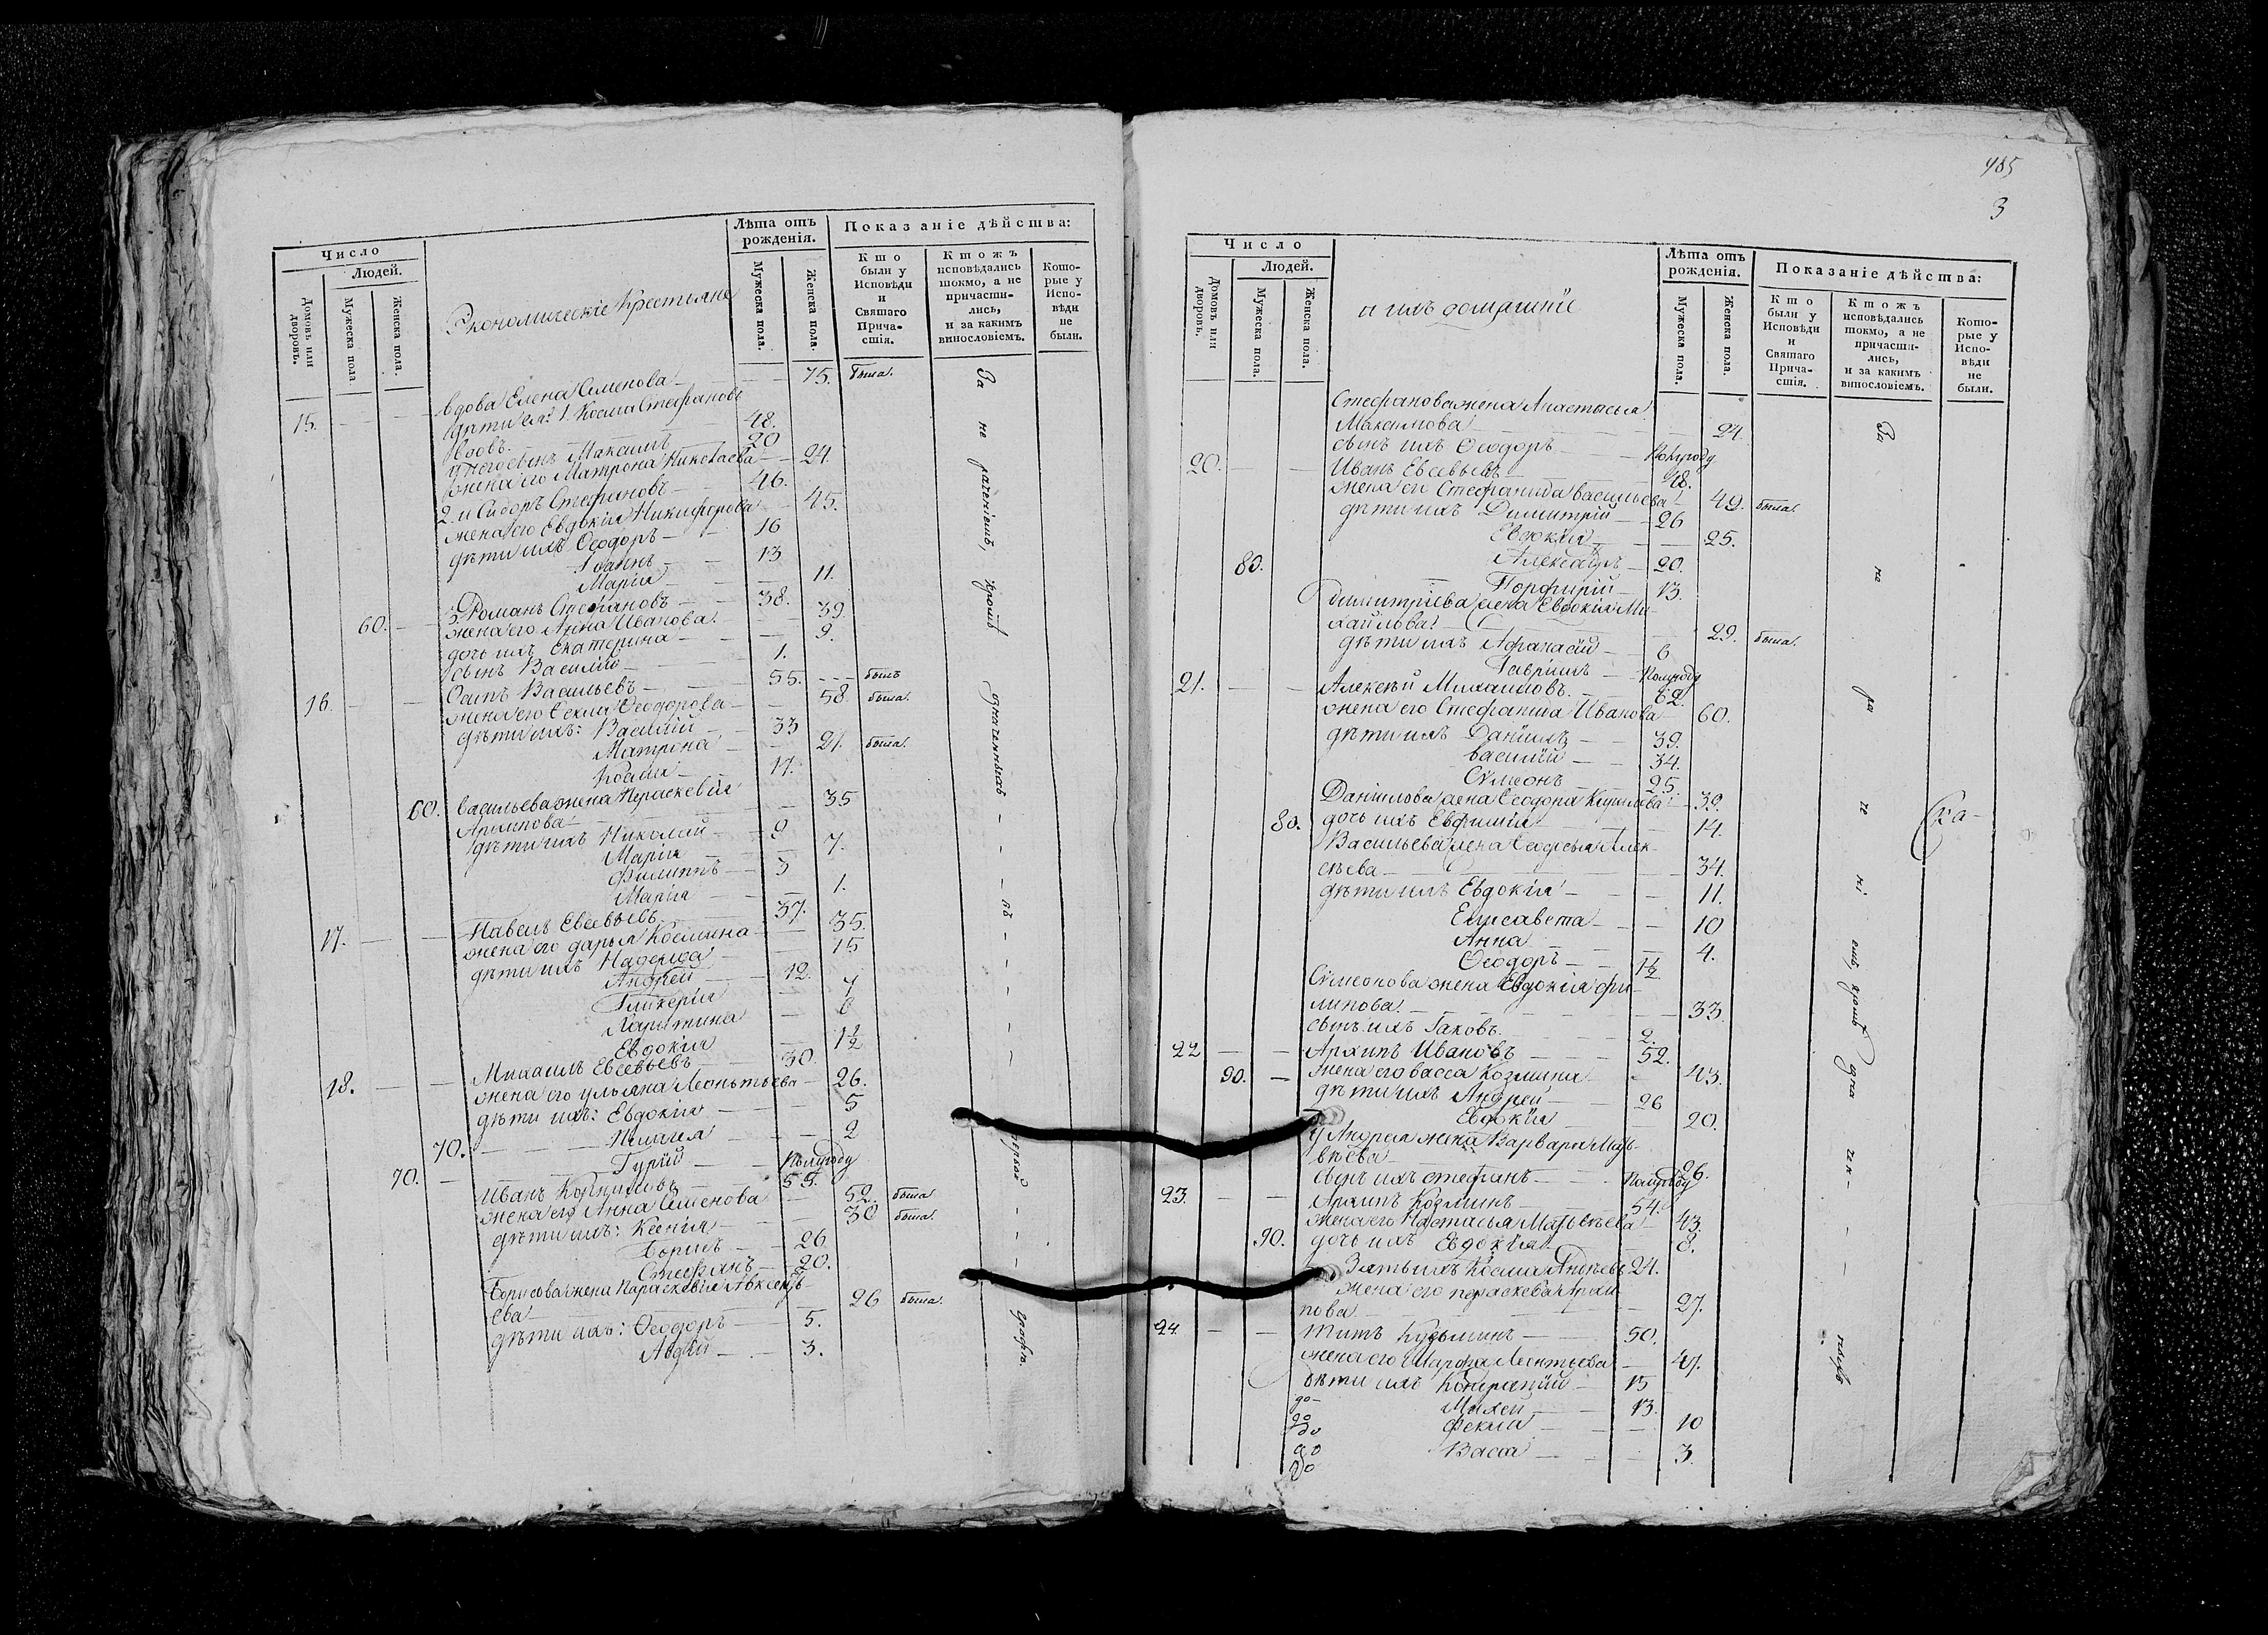 Число
Людей.
Домовъ или дворовъ.
Мужеска пола.
Женска пола.
Экономическіе Крестьяне
Лѣта отъ рожденія.
Мужеска пола.
Женска пола.
Показаніе дѣйства:
Кто были у Исповѣди и Святаго Причастія.
Ктожъ исповѣдались токмо, а не причастились, и за какимъ винословіемъ.
Которые у Исповѣди не были.
вдова Елена Семенова 75. была.
15. дѣти ея: 1. Косма Стефановъ
вдовъ. 48.
у него сынъ Максимъ 20
жена его Матрона Николаева 24.
2. и Сидоръ Стефановъ 46.
жена его Евдокія Никифорова 45.
дѣти ихъ Ѳеодоръ 16
Іоаннъ 13
Марія 11.
3. Романъ Стефановъ 38.
60. жена его Анна Иванова 39.
дочь ихъ Екатерина 9.
сынъ Василій 1.
16. Осипъ Васильевъ 55. былъ
жена его Ѳекла Ѳеодорова 58 была.
дѣти ихъ: Василій 33
Матрона 21. была.
Косма 17.
60. Васильева жена Параскевія
Архипова 35
дѣти ихъ Николай 9
Марія 7.
Филиппъ 3
Марія 1.
17. Павелъ Евсевьевъ 37.
жена его дарья Космина 35.
дѣти ихъ Надежда 15
Андрей 12.
Гликерія 7
Харитина 6
Евдокія 1½
18. Михаилъ Евсевьевъ 30.
жена его ульяна Леонтьева 26.
дѣти ихъ: Евдокія 5
70. Пелагея 2
70. Гурій Полугоду
Иванъ Корниловъ 55.
жена его Анна Семенова 52. была
дѣти ихъ: Ксенія 30 была.
Борисъ 26
Стефанъ 20.
Борисова жена Параскевія Авксентьева 26 была.
дѣти ихъ: Ѳеодоръ 5.
Авдѣй 3.
За не раченіемъ, кромѣ
485
3
Число
Людей.
Домовъ или дворовъ.
Мужеска пола.
Женска пола.
и ихъ домашніе
Лѣта отъ рожденія.
Мужеска пола.
Женска пола.
Показаніе дѣйства:
Кто были у Исповѣди и Святаго Причастія.
Ктожъ исповѣдались токмо, а не причастились, и за какимъ винословіемъ.
Которые у Исповѣди не были.
Стефанова жена Анастасья
Максимова 24.
сынъ ихъ Ѳеодоръ Полугоду
20. Иванъ Евсевьевъ 48.
жена его Стефанида васильева 49. была.
дѣти ихъ Димитрій 26
Евдокія 25.
80. Александръ 20.
Порфирій 13.
Димитріева жена Евдокія Михайлова 29. была.
дѣти ихъ Афанасій 6
Гавріилъ Полугоду
21. Алексѣй Михаиловъ. 62.
жена его Стефанида Иванова 60.
дѣти ихъ Даніилъ 39.
василій 34.
Сѵмеонъ 25.
Даніилова жена Ѳеодора Кирилова 39.
80. дочь ихъ Евфимія 14.
Васильева жена Ѳеодосья Алексѣева 34.
дѣти ихъ Евдокія 11.
Елисавета 10
Анна 4.
Ѳеодоръ 1½
Сѵмеонова жена Евдокія филипова. 33.
сынъ ихъ Іаковъ. 2.
22 Архипъ Ивановъ 52.
90. жена его васса Козмина 43.
дѣти ихъ Андрей 26
Евдокія 20.
у Андрея жена Варвара Матвѣева 26.
сынъ ихъ стефанъ Полугоду
23. Архипъ Козминъ 54.
жена его Настасья Матвѣева 43.
90. дочь ихъ Евдокія 8.
Зять ихъ Косма 24.
жена его параскева Архипова 27.
24. титъ Кузьминъ 50.
жена его Марфа Леонтьева 47.
дѣти ихъ Кондратій 15
Михей 13.
Фекла 10
Васса 3.